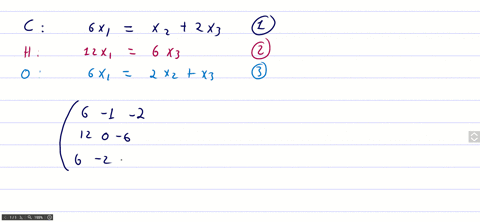 C: 6x₁ = x₂ + 2x₃ ①
H: 12x₁ = 6x₃ ②
O: 6x₁ = 2x₂ + x₃ ③
( 6 -1 -2
12 0 -6
6 -2